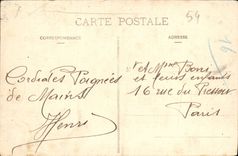 CARTE POSTALE
54
CORRESPONDANCE
ADRESSE
16
Cordiales Poignées
de Mains
Henri
et Mme Bons
et leurs enfants
16 rue du Pressoir
Paris